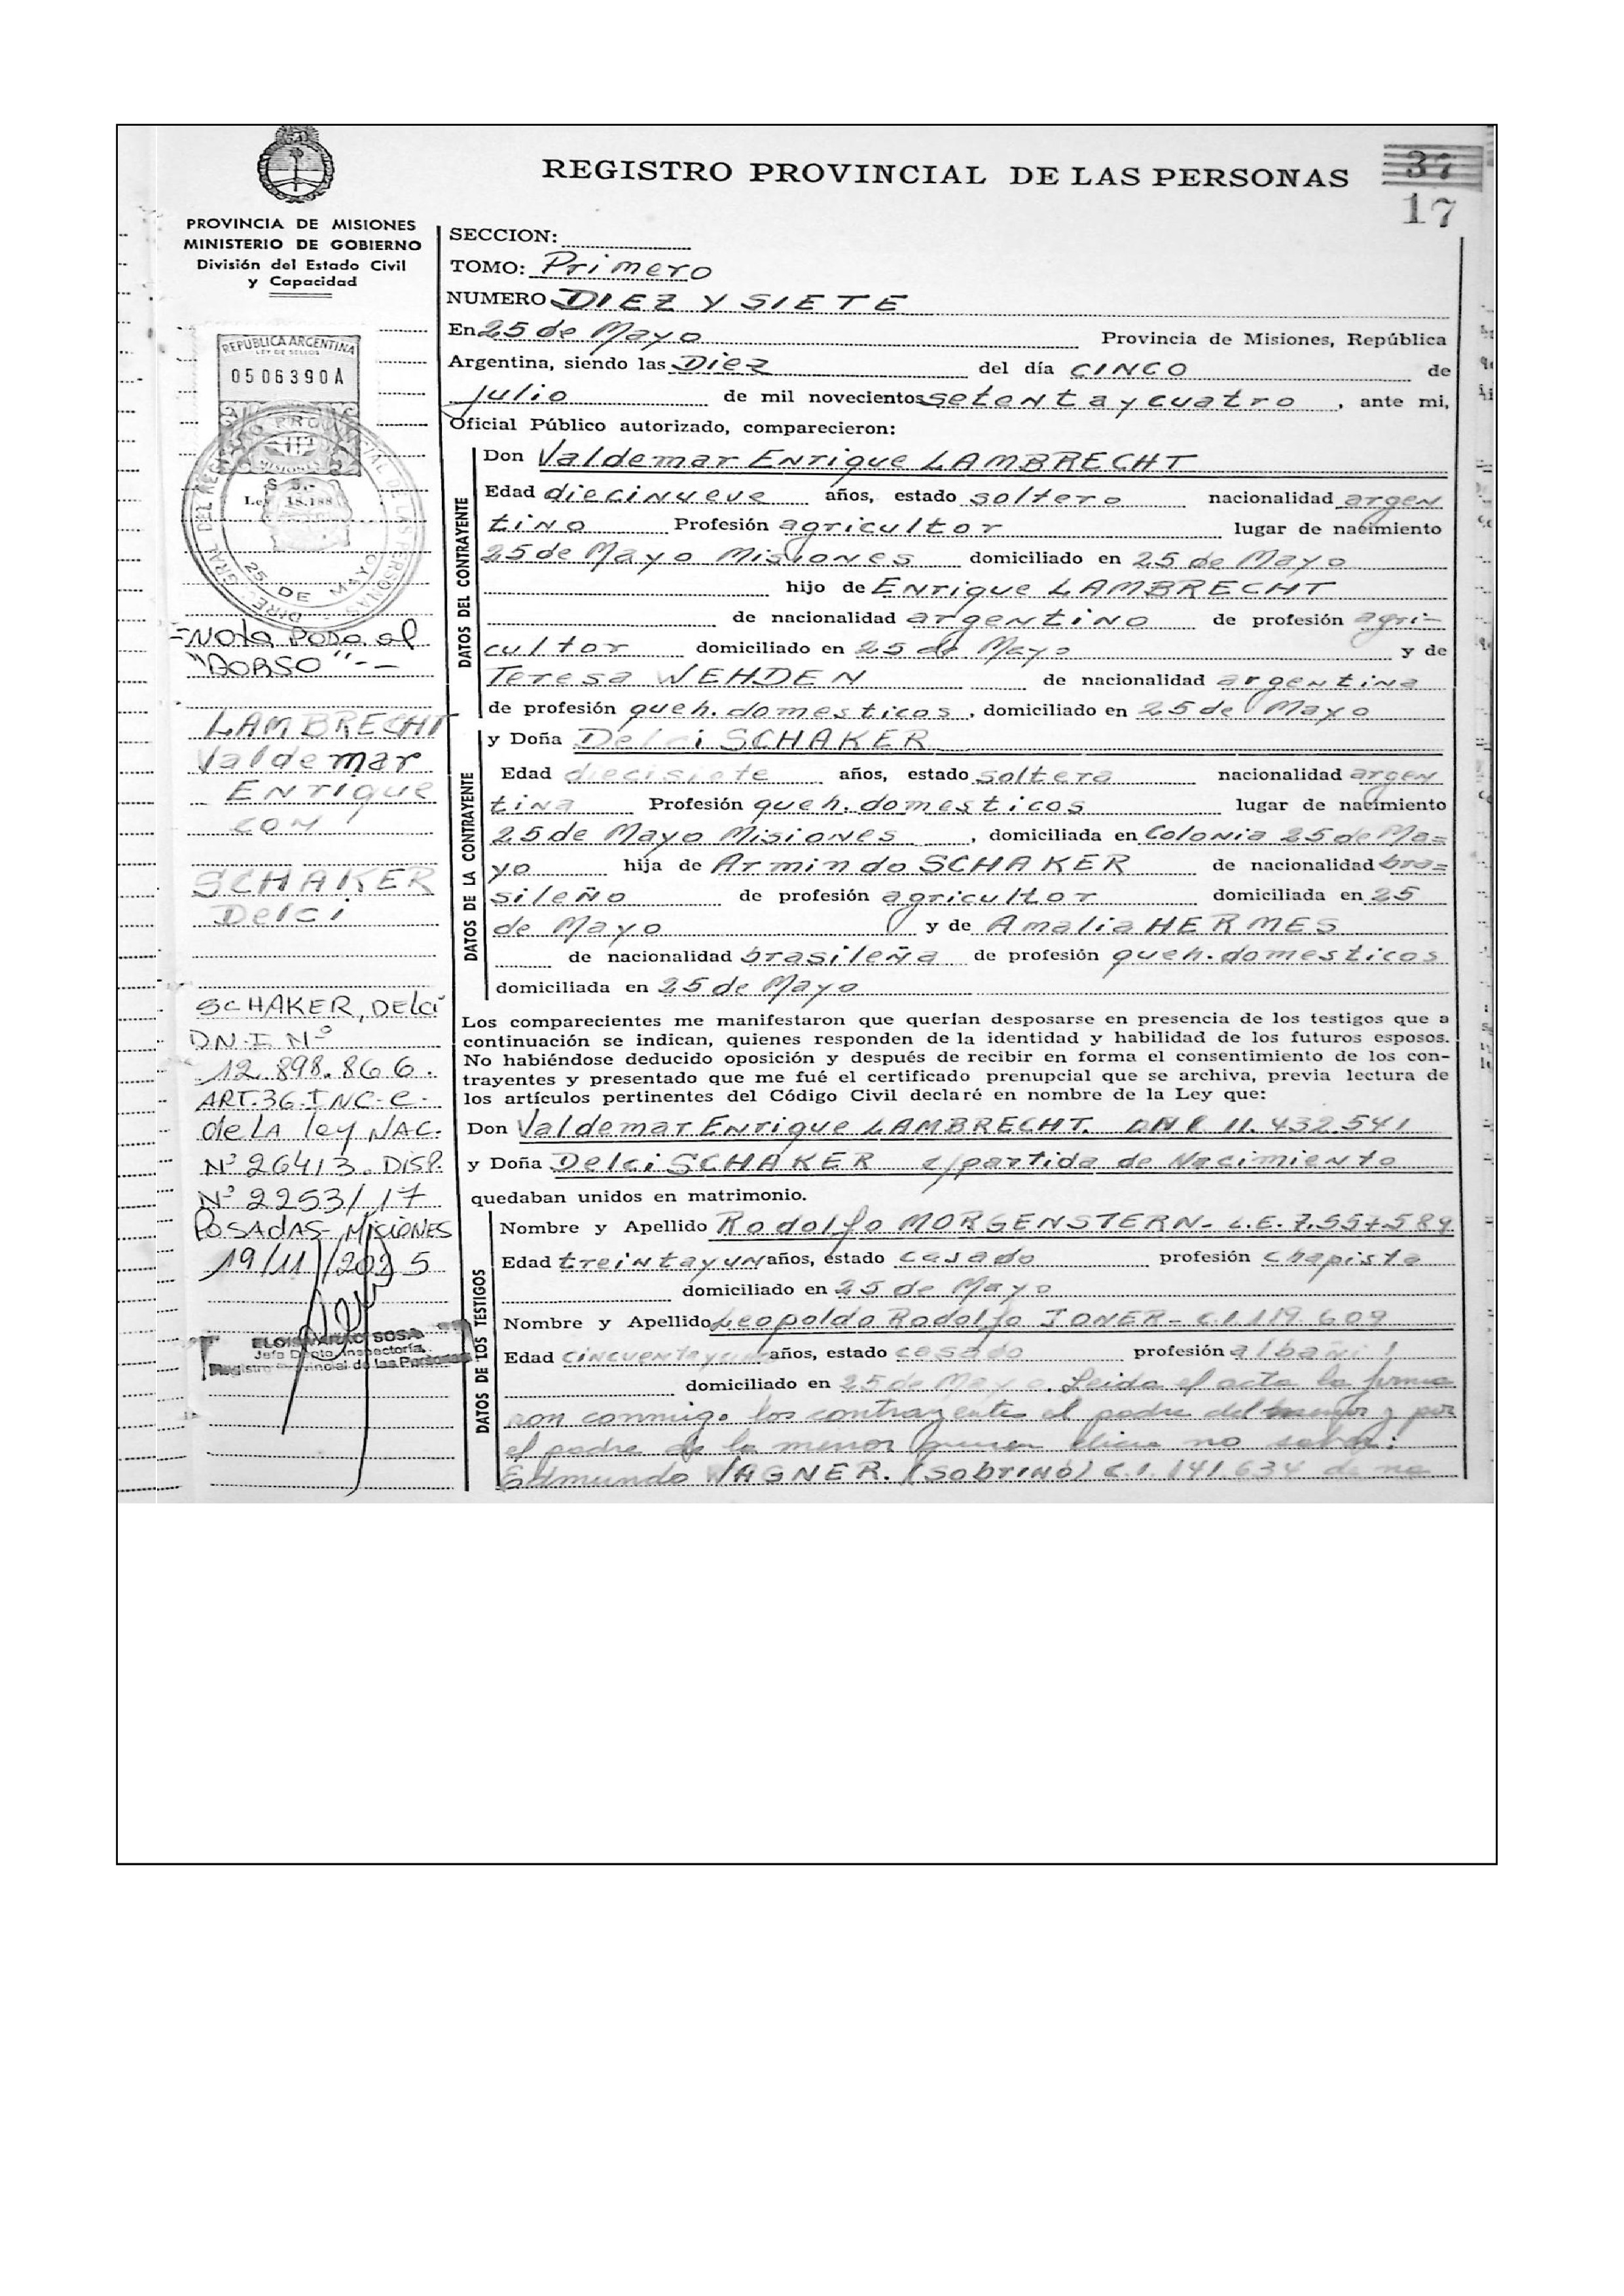 REGISTRO PROVINCIAL DE LAS PERSONAS
37
17
PROVINCIA DE MISIONES
MINISTERIO DE GOBIERNO
División del Estado Civil
y Capacidad
REPUBLICA ARGENTINA
LEY DE SELLOS
0506390A
MISIONES
$ 5.-
Ley 18.188
25 DE MAYO
=Nota pasa al
"DORSO"--
LAMBRECHT
Valdemar
Enrique
con
SCHAKER
Delci
SCHAKER, DELCI
D.N.I. Nº
12.898.866.
ART.36.INC-C-
de LA ley NAC.
Nº 26413. DISP.
Nº 2253/17
POSADAS-MISIONES
19/11/2025
SOSA
Jefa Dpto. Inspectoría
Registro Provincial de las Personas
SECCION:
TOMO: Primero
NUMERO DIEZ Y SIETE
En 25 de Mayo Provincia de Misiones, República
Argentina, siendo las Diez del día CINCO de
Julio de mil novecientos setenta y cuatro, ante mi,
Oficial Público autorizado, comparecieron:
DATOS DEL CONTRAYENTE
Don Valdemar Enrique LAMBRECHT
Edad diecinueve años, estado soltero nacionalidad argen
tino Profesión agricultor lugar de nacimiento
25 de Mayo Misiones domiciliado en 25 de Mayo
hijo de Enrique LAMBRECHT
de nacionalidad argentino de profesión agri-
cultor domiciliado en 25 de Mayo y de
Teresa WEHDEN de nacionalidad argentina
de profesión queh. domesticos, domiciliado en 25 de Mayo
DATOS DE LA CONTRAYENTE
y Doña Delci SCHAKER
Edad diecisiete años, estado soltera nacionalidad argen
tina Profesión queh. domesticos lugar de nacimiento
25 de Mayo Misiones, domiciliada en Colonia 25 de Ma=
yo hija de Armindo SCHAKER de nacionalidad bra=
sileño de profesión agricultor domiciliada en 25
de Mayo y de Amalia HERMES
de nacionalidad brasileña de profesión queh. domesticos
domiciliada en 25 de Mayo
Los comparecientes me manifestaron que querían desposarse en presencia de los testigos que a
continuación se indican, quienes responden de la identidad y habilidad de los futuros esposos.
No habiéndose deducido oposición y después de recibir en forma el consentimiento de los con-
trayentes y presentado que me fué el certificado prenupcial que se archiva, previa lectura de
los artículos pertinentes del Código Civil declaré en nombre de la Ley que:
Don Valdemar Enrique LAMBRECHT. DNI 11.432.541
y Doña Delci SCHAKER c/partida de Nacimiento
quedaban unidos en matrimonio.
DATOS DE LOS TESTIGOS
Nombre y Apellido Rodolfo MORGENSTERN- L.E. 7.557.589
Edad treinta y un años, estado casado profesión chapista
domiciliado en 25 de Mayo
Nombre y Apellido Leopoldo Rodolfo JONER- C.I. 119.609
Edad cincuenta y años, estado casado profesión albañil
domiciliado en 25 de Mayo. Leida el acta la firma
ron conmigo los contrayentes el padre del menor y por
el padre de la menor quien dice no saber:
Edmundo WAGNER. (Sobrino) C.I. 141.634 de na